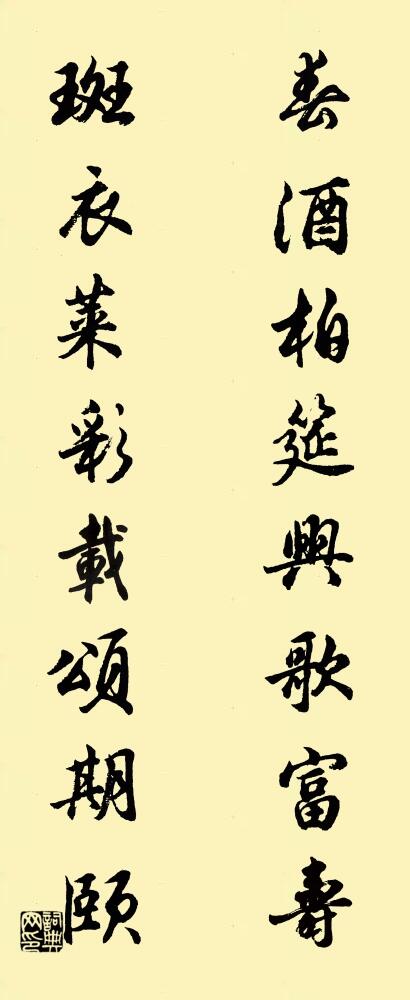 春酒柏筵興歌富壽
斑衣萊彩載頌期頤
詞典網印